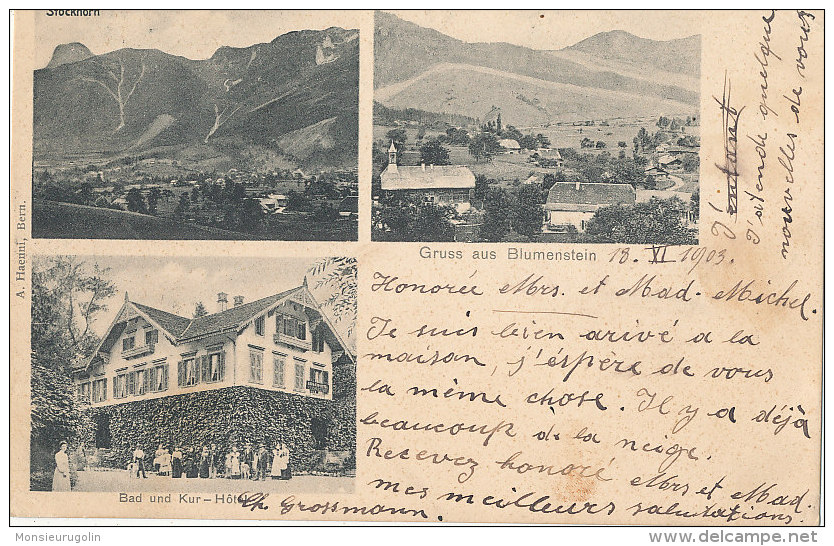 Stockhorn
A. Haenni, Bern.
Gruss aus Blumenstein
18. VI 1903.
Honorée Mrs. et Mad. Michel.
Je suis bien arrivé a la
maison, j'espère de vous
la même chose. Il y a déjà
beaucoup de la neige.
Recevez honoré Mrs et Mad.
mes meilleurs salutations.
Bad und Kur-Hôtel
Ch. Grossmann.
J'attends quelque
nouvelles de vous
Monsieurugolin
www.delcampe.net